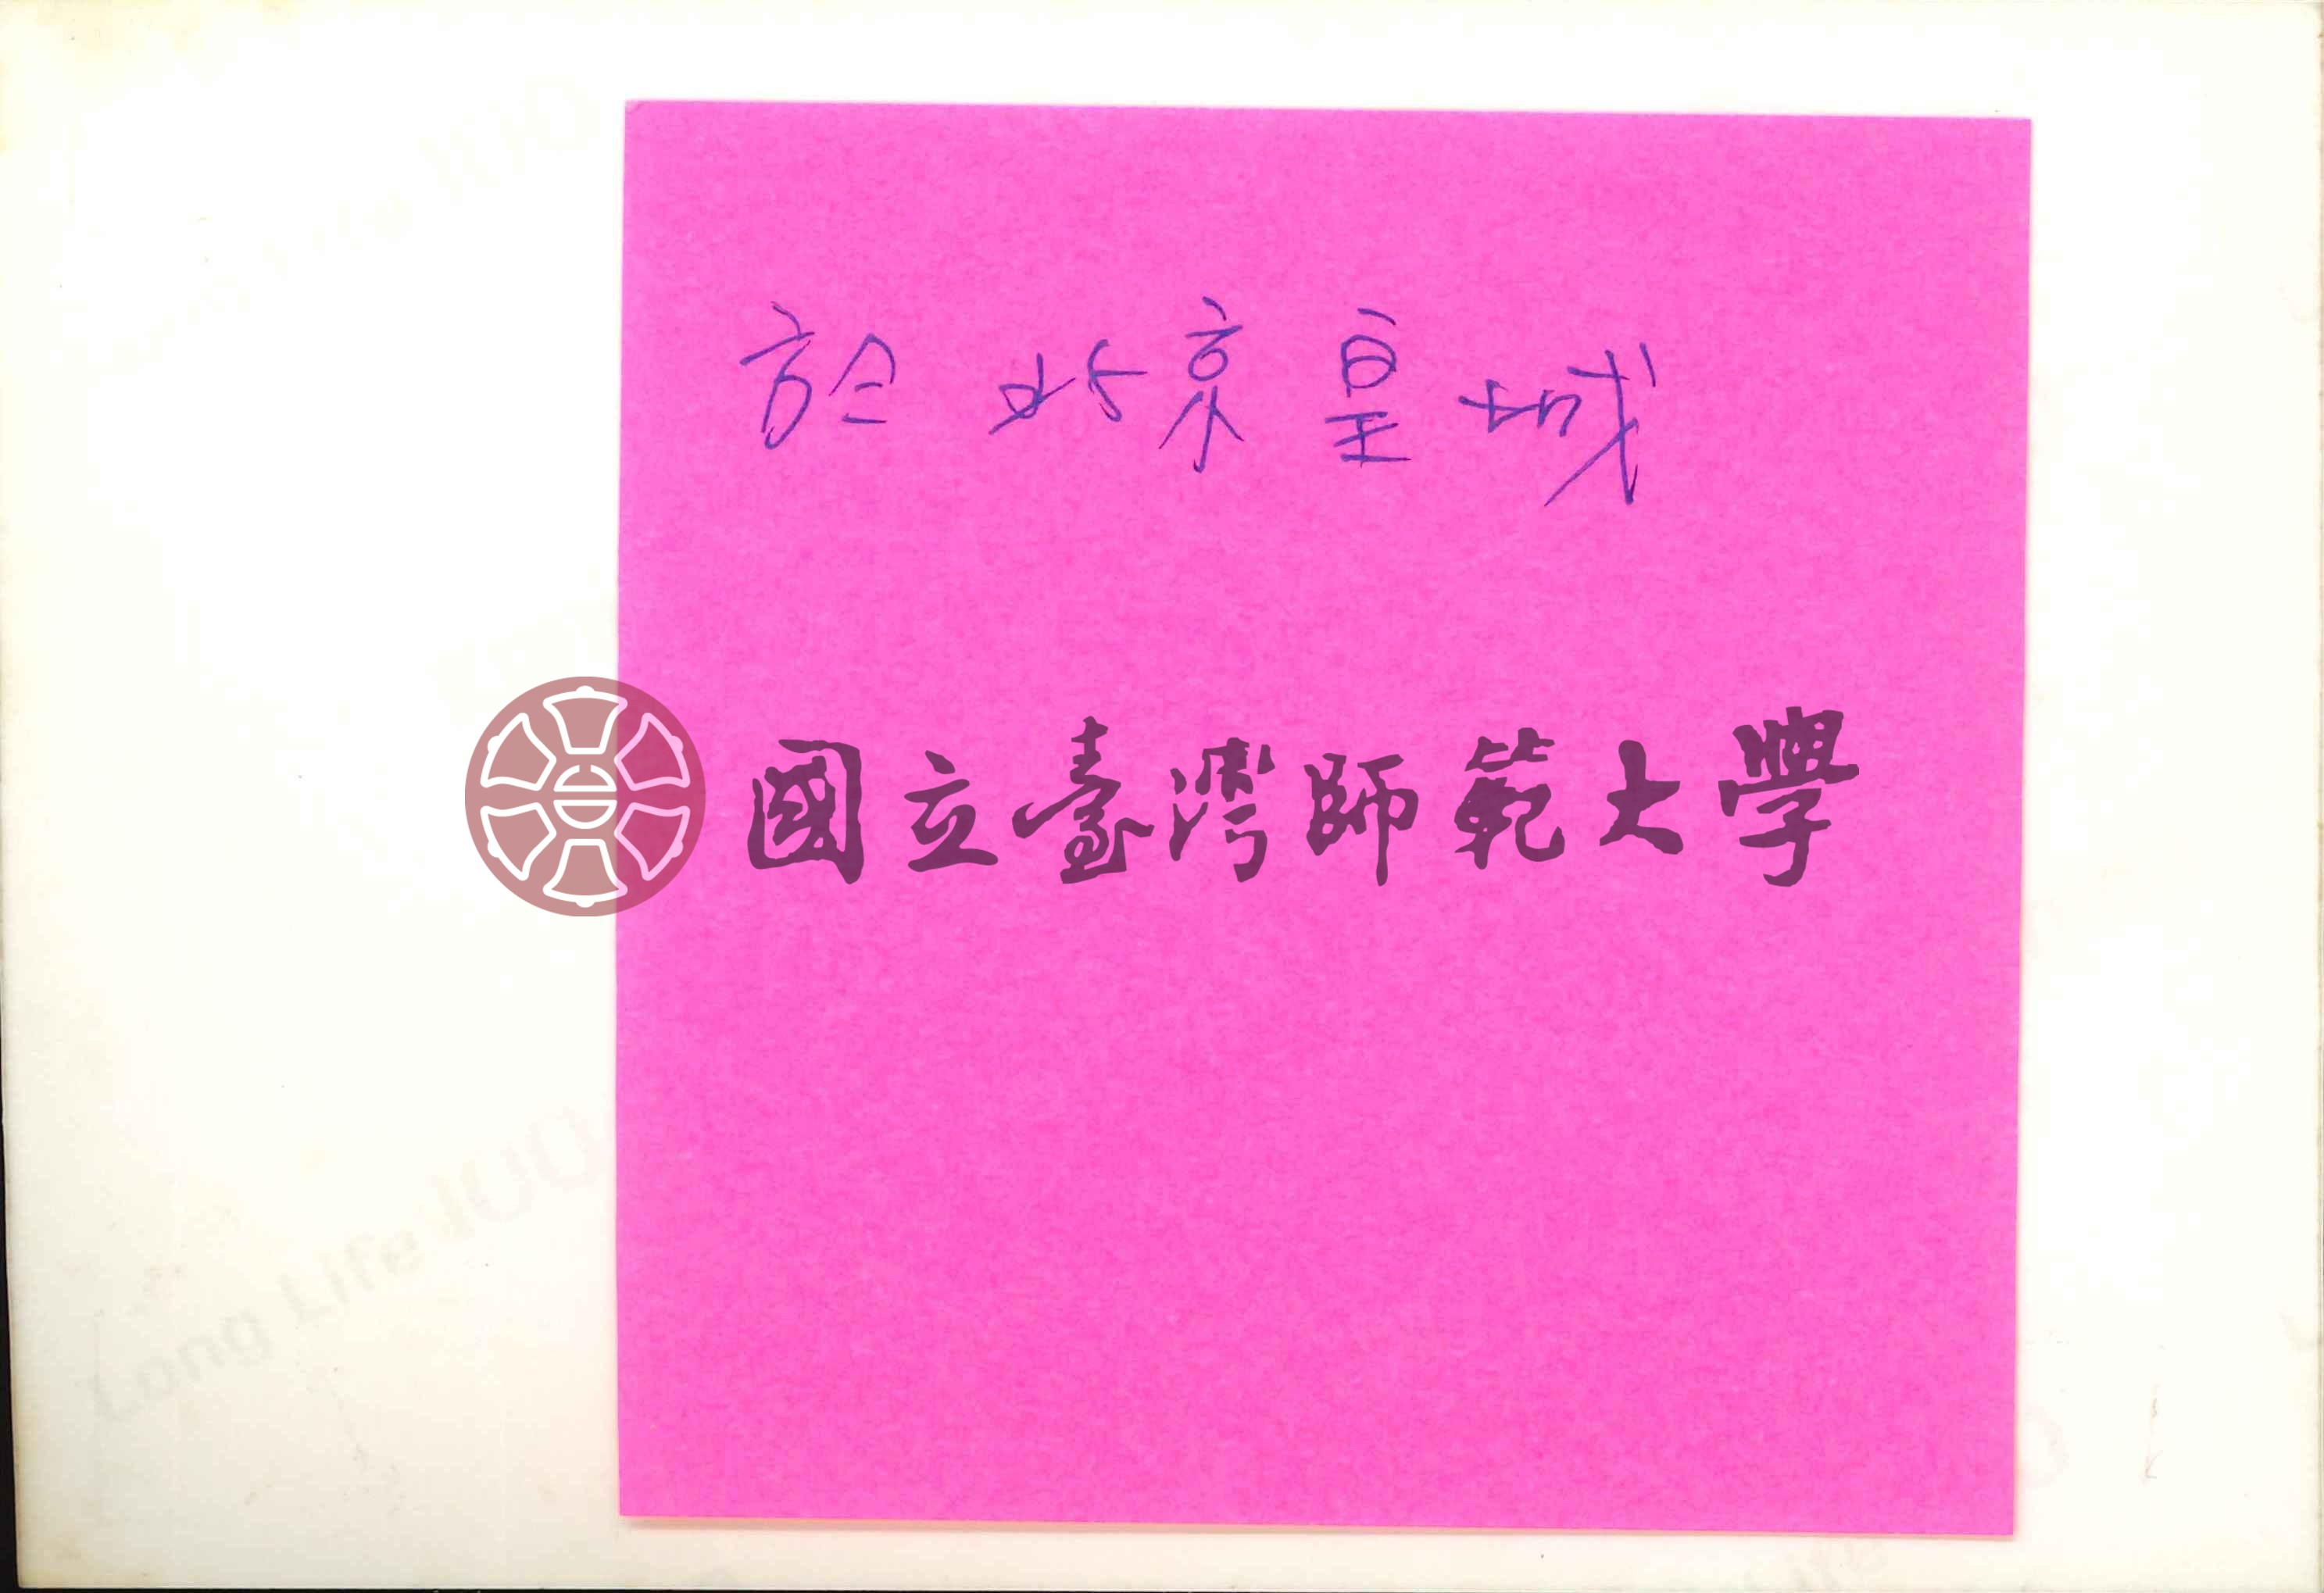 於北京皇城
國立臺灣師範大學
Long Life